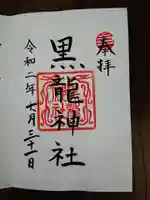 奉拝
黒龍神社
令和二年七月三十一日